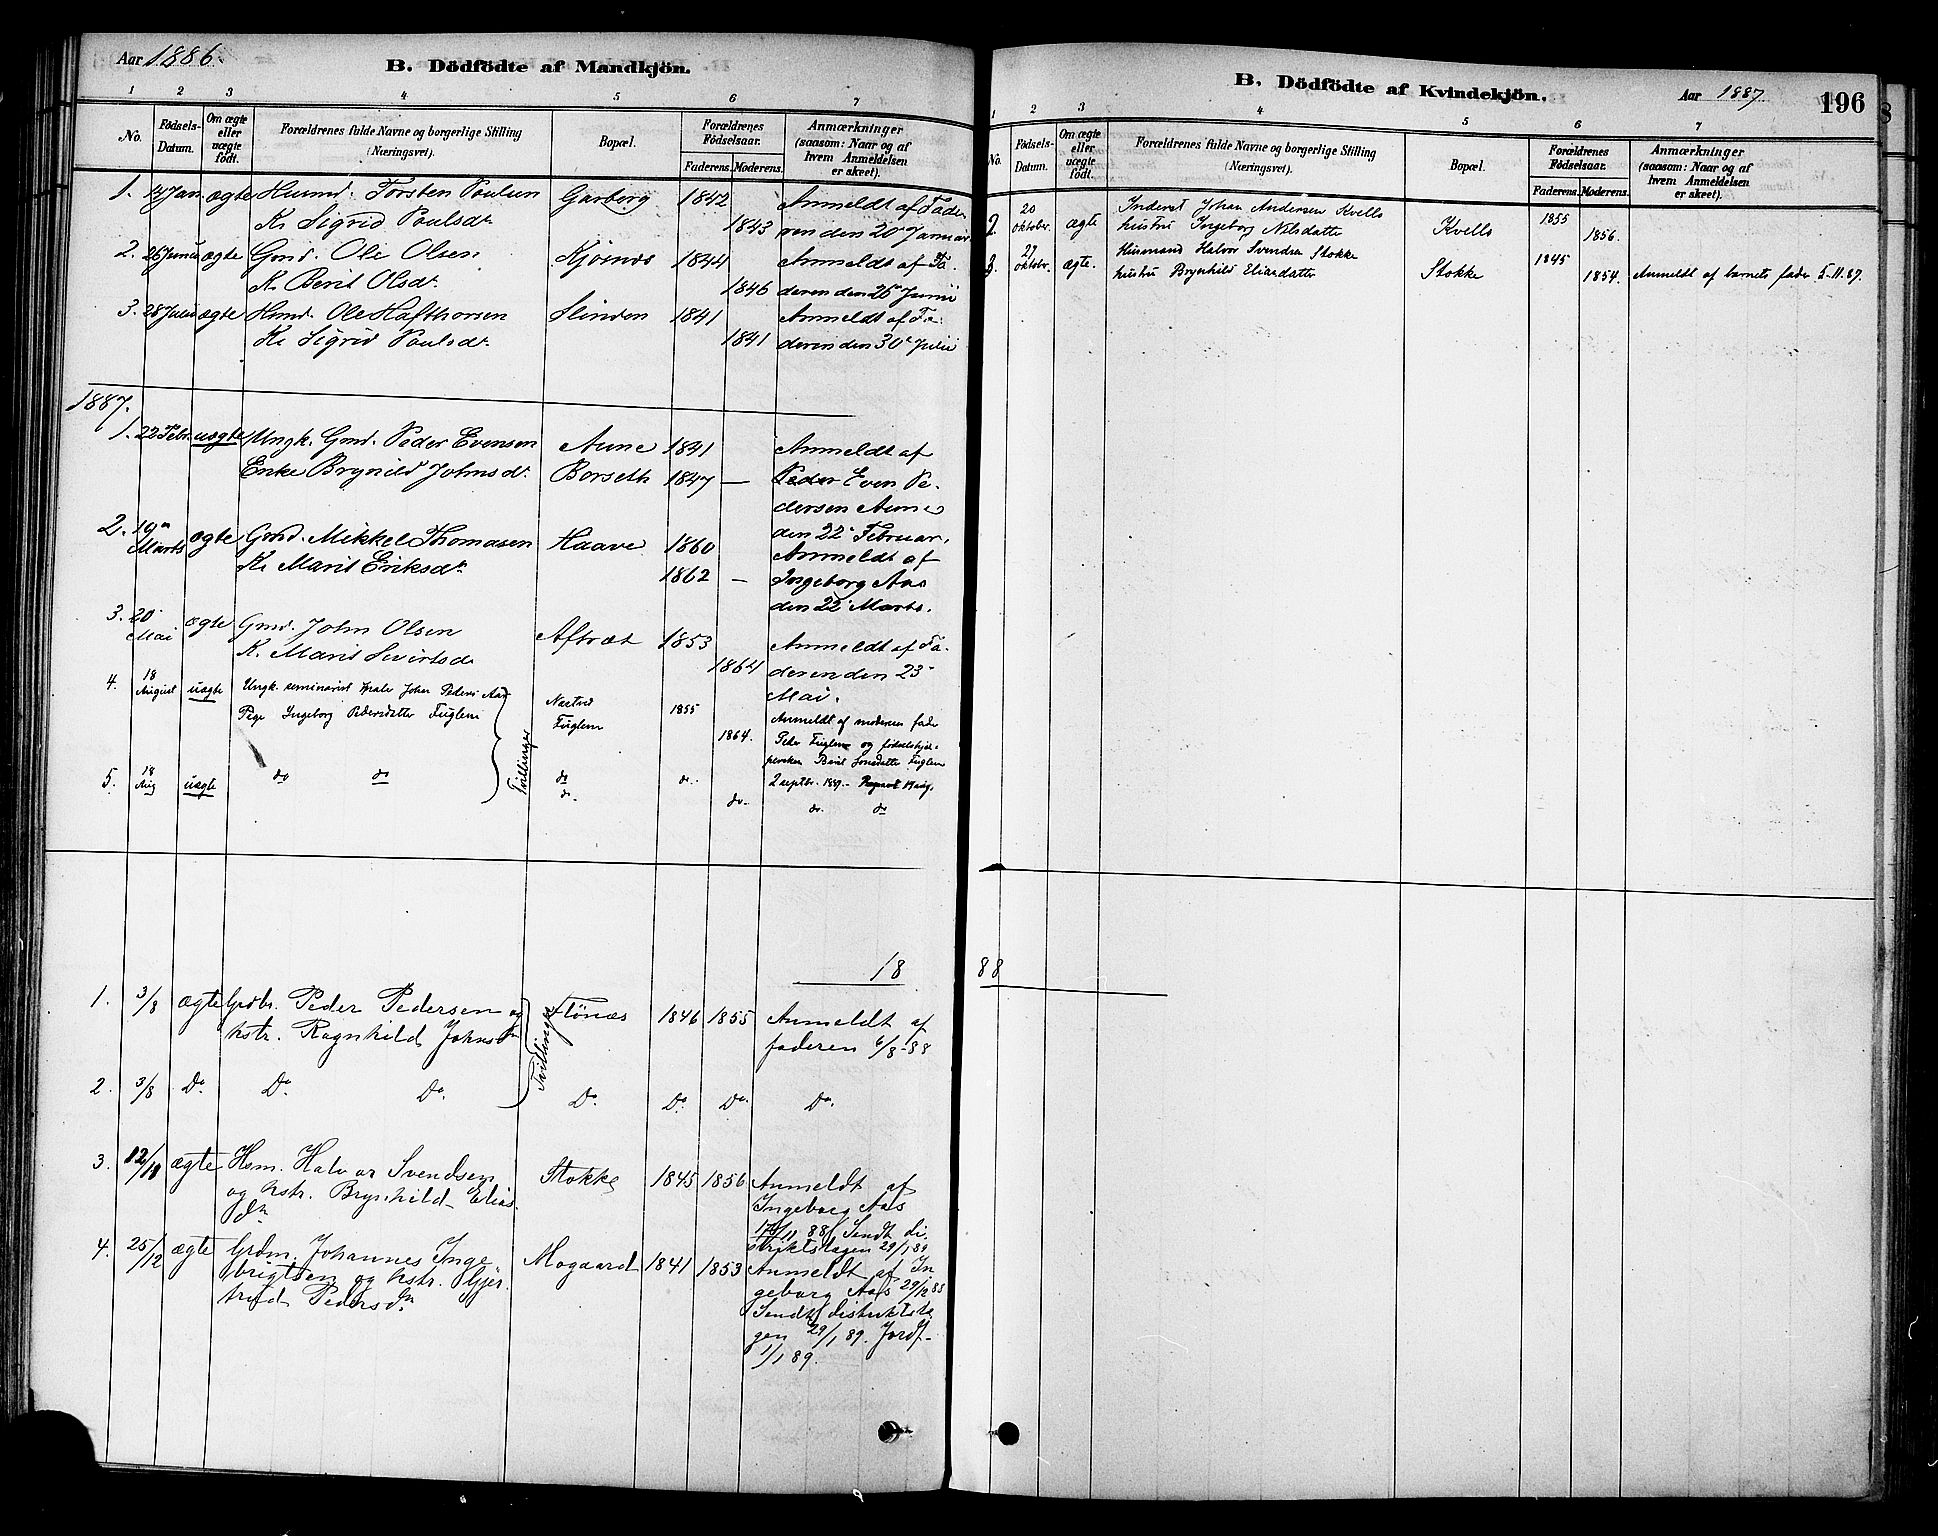 Aar 1886.
B. Dödfödte af Mandkjön.
1 2 3 4 5 6 7
No. Födsels-Datum. Om ægte eller uægte födt. Forældrenes fulde Navne og borgerlige Stilling (Næringsvei). Bopæl. Forældrenes Födselsaar. Faderens. Moderens. Anmærkninger (saasom: Naar og af hvem Anmeldelsen er skeet).
1. Jan. ægte Husmd. Torsten Poulsen Garberg 1842 Anmeldt af Fade
K. Sigrid Poulsdr. 1843 ren den 20 Januar
2. 26 Junii ægte Gmd. Ole Olsen Kjösnes 1844 Anmeldt af Fa
K. Berit Olsdr. 1846 deren den 26 Junii
3. 28 Julii ægte Hmd. Ole Hafthorsen Slinden 1841 Anmeldt af Fa
K. Sigrid Poulsdr. 1841 deren den 30 Julii
1887.
1. 22 Febr. uægte Ungk. Gmd. Peder Evensen Aune 1841 Anmeldt af
Enke Brynild Johnsdr. Borseth 1847 — Peder Even Pe-
dersen Aune
den 22 Februar.
2. 19 Marts ægte Gmd. Mikkel Thomasen Haave 1860 Anmeldt af
K. Marit Eriksdr. 1862 — Ingeborg Aas
den 22 Marts.
3. 20 Mai ægte Gmd. John Olsen Aftræt 1853 Anmeldt af Fa
K. Marit Sivertsdr 1864 deren den 23
Mai.
4. 18 August uægte Ungk. seminarist Johan Peders. Næsved 1855 Anmeldt af moderens fader
Pige Ingeborg Pedersdatter Fuglem Fuglem 1864. Peder Fuglem og fødselshjæl-
persken Berit Jonsdatter Fuglem
2 septbr. 1887.
5. 18 Aug uægte do do Tvillinger do do. do. do. do. do
18 88
1. 3/8 ægte Grdbr. Peder Pedersen og Flönæs 1846 1855 Anmeldt af
hstr. Ragnhild Johnsdn Tvillinger faderen 6/8-88
2. 3/8 Do. Do. Do. Do. Do. Do. Do.
3. 12/11 ægte Hsm. Halvor Svendsen Stokke 1845 1856 Anmeldt af
og hstr. Brynhild Elias- Ingeborg Aas
dn 17/11 88 Sendt di-
striktslægen 29/1 89
4. 25/12 ægte Grdm. Johannes Inge- Mogaard 1841 1853 Anmeldt af In
brigtsen og hstr. Gjer- geborg Aas 29/12 88
trud Pedersdn. Sendt distriktslæ
gen 29/1 89. Jordf.
1/1 89.
B. Dödfödte af Kvindekjön.
Aar 1887
196
1 2 3 4 5 6 7
No. Födsels-Datum. Om ægte eller uægte födt. Forældrenes fulde Navne og borgerlige Stilling (Næringsvei). Bopæl. Forældrenes Födselsaar. Faderens. Moderens. Anmærkninger (saasom: Naar og af hvem Anmeldelsen er skeet).
2. 20 oktober. ægte Inderst Johan Andersen Kvello 1855
hustru Ingeborg Nilsdatter Kvello 1856.
3. 27 oktober. ægte. Husmand Halvor Svendsen Stokke 1845
hustru Brynhild Eliasdatter Stokke 1854. Anmeldt af barnets fader 5-11-87.